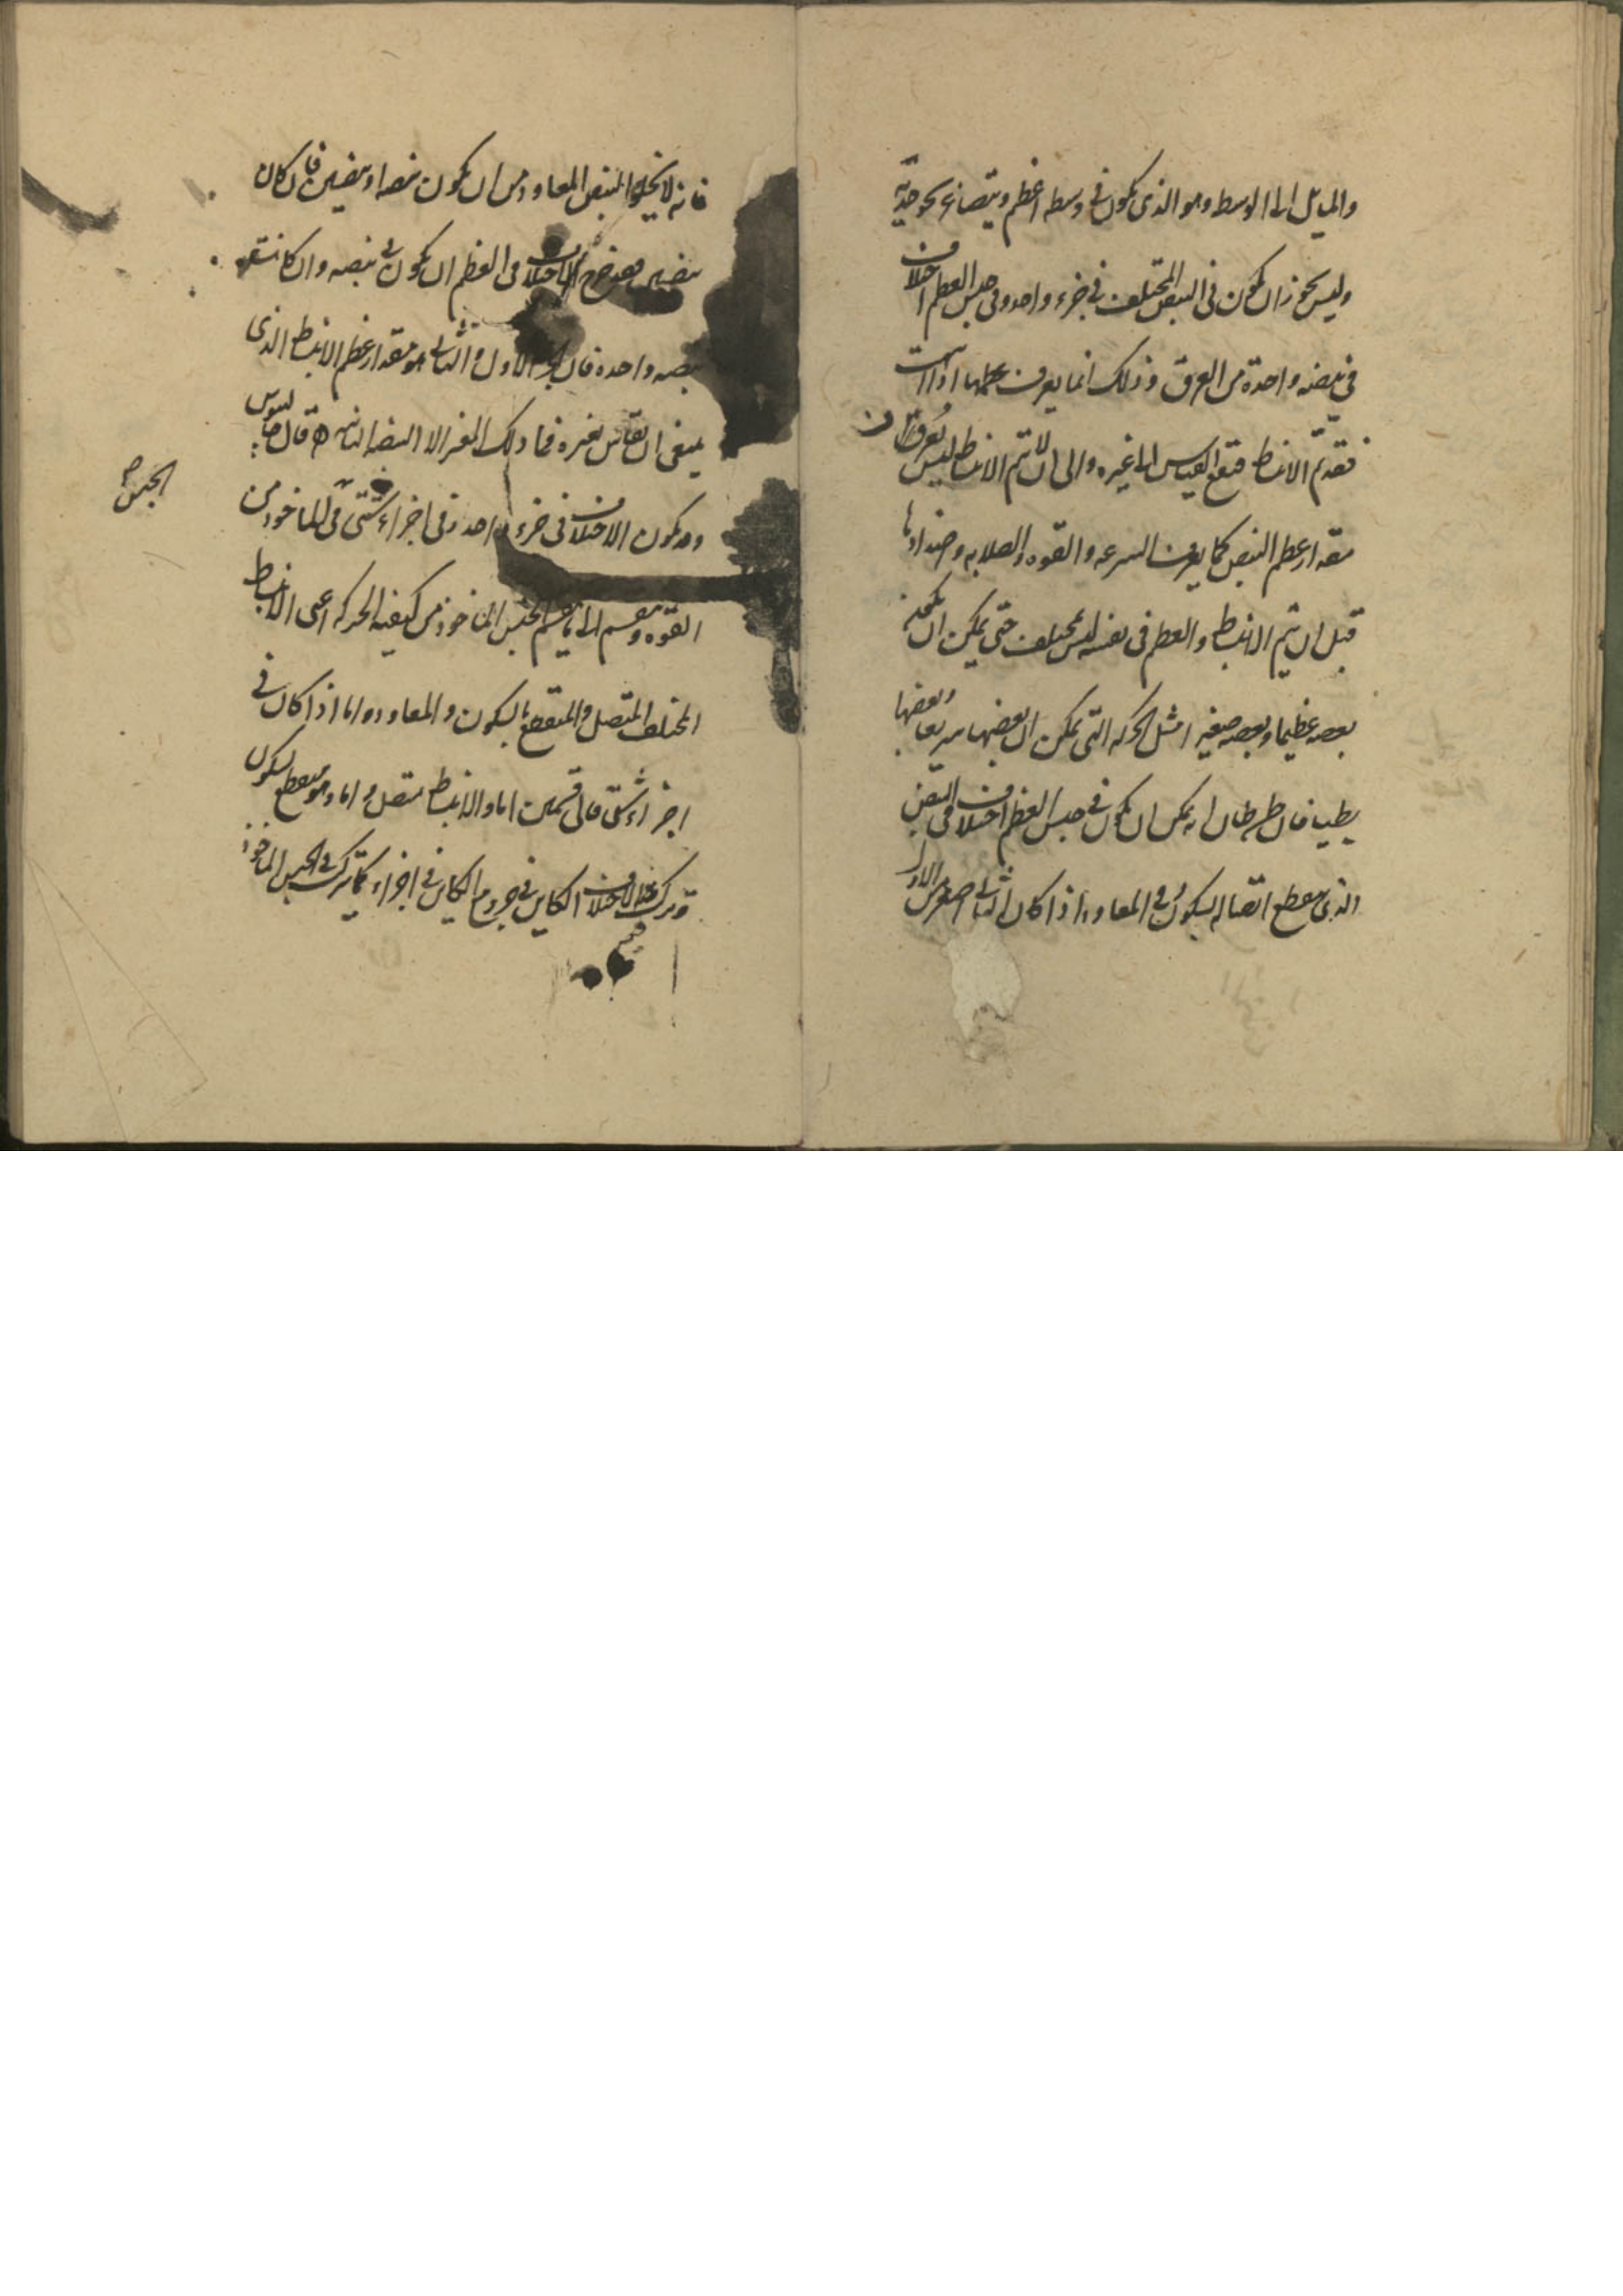 والمايل الى الوسط وهو الذى يكون فى وسطه اعظم ويتصاغر نحو جنبيه
وليس يجوز ان يكون فى النبض المختلف فى جزء واحد وفى جنس العظم اختلاف
فى نبضه واحدة من العرق وذلك انما يعرف عظمها اذا
فقد تم الانبساط فتقع القياس الى غيره والى ان لا يتم الانبساط ليس يعرف
مقدار عظم النبض كما يعرف السرعه والقوه والصلابه واضدادها
قبل ان يتم الانبساط والعظم فى نفسه ليس مختلف حتى يمكن ان
بعضه عظيما وبعضه صغيرا مثل الحركه التى يمكن ان بعضها سريعا وبعضها
بطيا فان ظن ظان انه يمكن ان يكون فى جنس العظم اختلاف فى النبض
الذى ينقطع اتصاله بسكون وفى المعاود اذا كان الثانى اصغر من الاول
فانه لا يخلوا النبض المعاود من ان يكون نبضه او نبضين فان كان
نبضين فقد خرج الاختلاف فى العظم ان يكون فى نبضه وان كانت
نبضه واحده فان الاول والثانى هو مقدار عظم الانبساط الذى
ينبغى ان يقاس بغيره فما ذلك الغير الا النبضه الثانيه قال جالينوس
وقد يكون الاختلاف فى جزء واحد وفى اجزاء شتى فى الماخوذ من
الجنس
القوه وينقسم الى ما ينقسم الجنس الماخوذ من كيفيه الحركه اعنى الانبساط
المختلف المتصل والمنقطع بالسكون والمعاود واما اذا كان فى
اجزاء شتى فالى قسمين اما والانبساط متصل واما وهو منقطع بسكون
وترك الاختلاف الكاين فى جزء الكاين فى اجزاء كما ترك فى الجنس الماخوذ